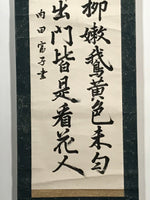 柳嫩鵞黄色未匀
出門皆是看花人
内田富子書